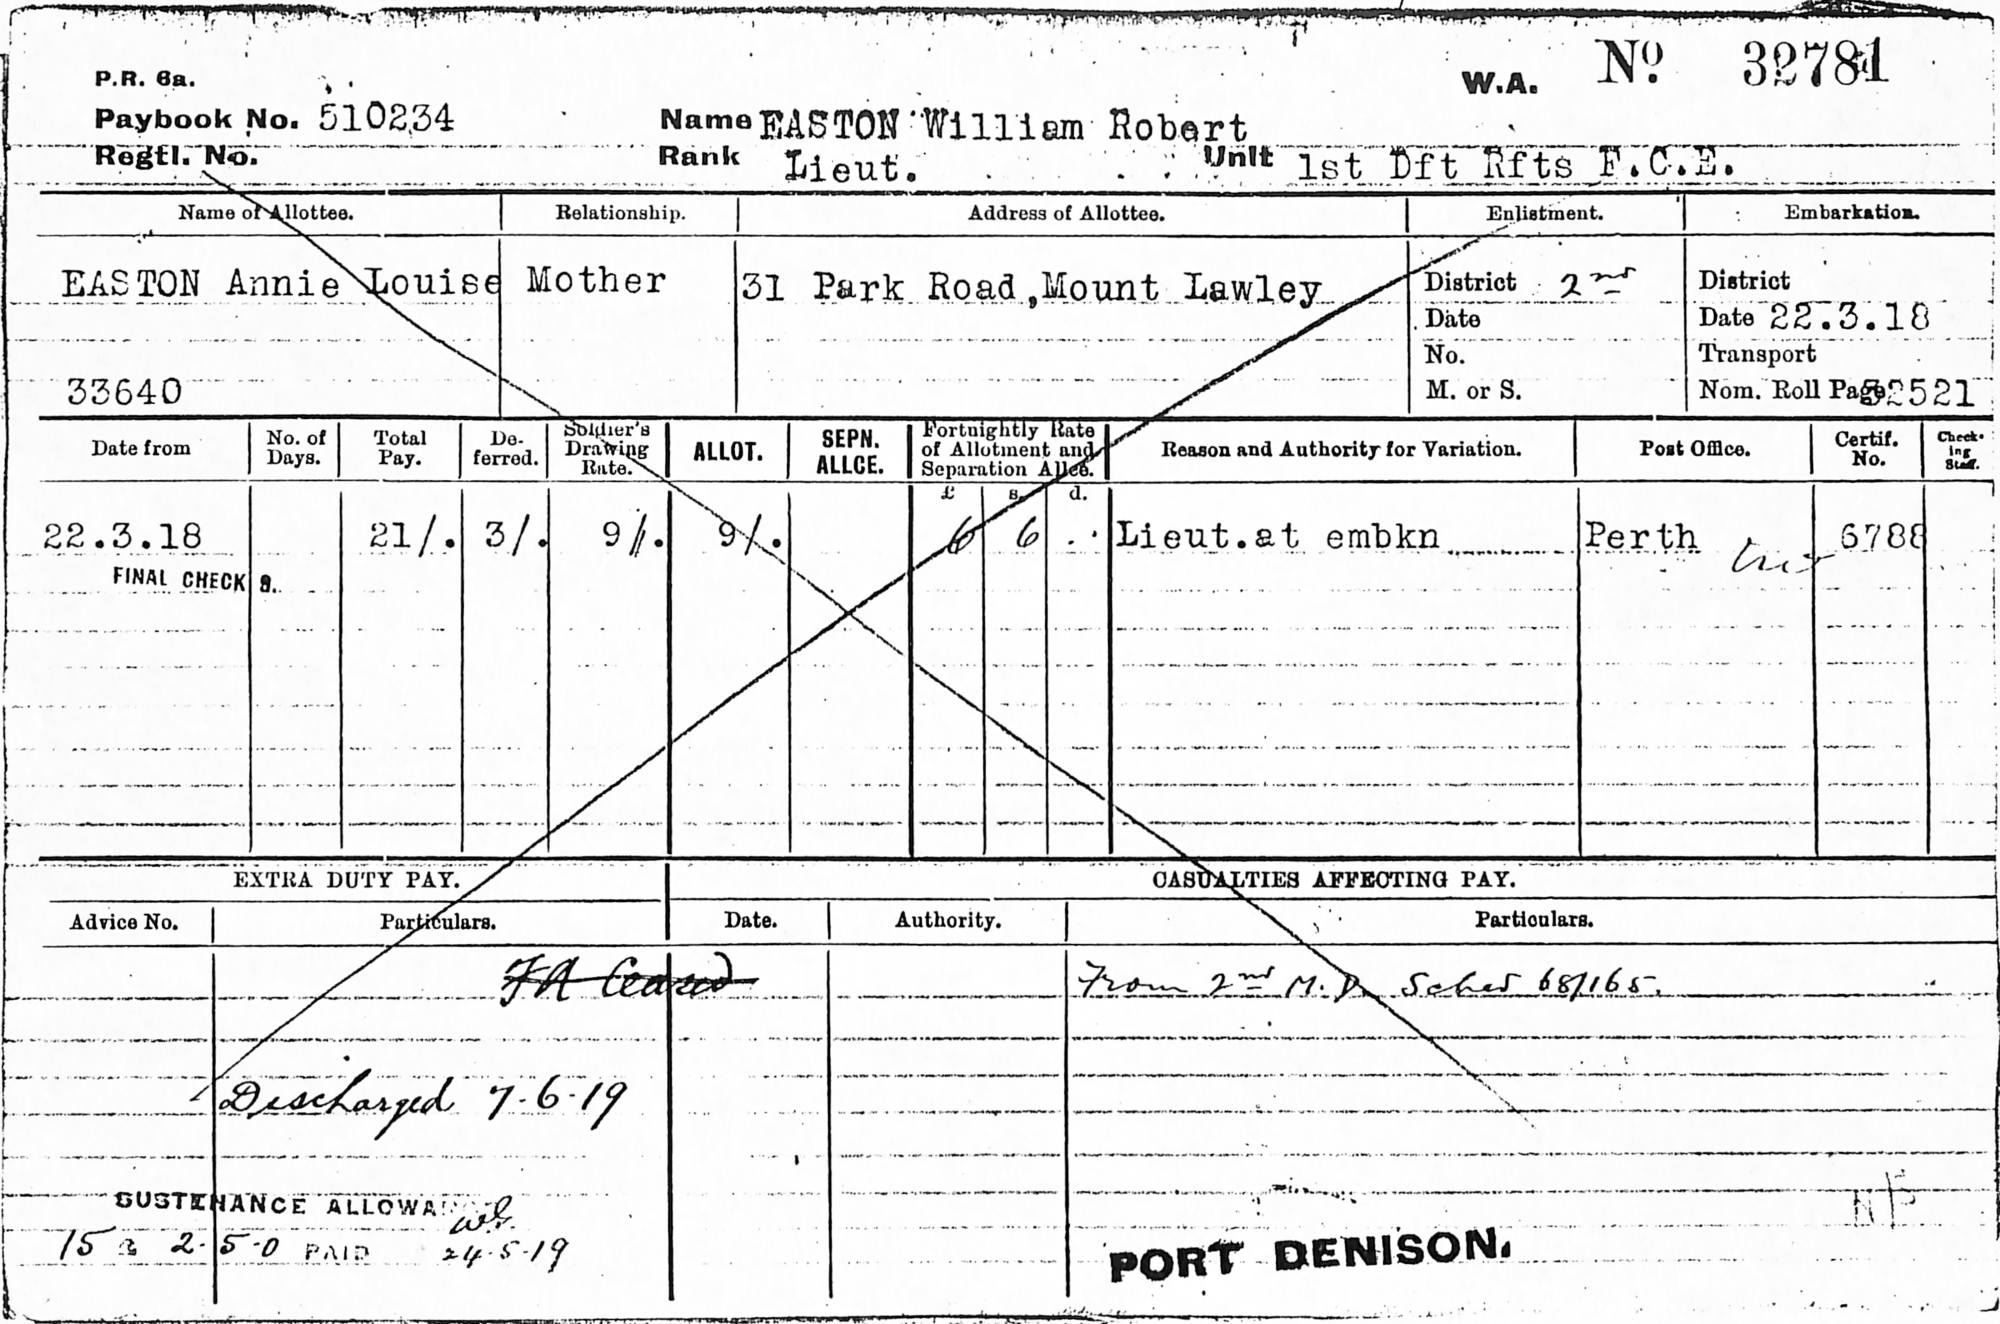 W.A. No. 32781
P.R. 6a.
Paybook No. 510234 Name EASTON William Robert
Regtl. No. Rank Lieut. Unit 1st Dft Rfts F.C.E.
Name of Allottee. Relationship. Address of Allottee. Enlistment. Embarkation.
EASTON Annie Louise Mother 31 Park Road, Mount Lawley District 2nd District
Date Date 22.3.18
No. Transport
33640 M. or S. Nom. Roll Page 52521
Date from No. of Days. Total Pay. De-ferred. Soldier's Drawing Rate. ALLOT. SEPN. ALLCE. Fortnightly Rate of Allotment and Separation Allce. Reason and Authority for Variation. Post Office. Certif. No. Check-ing Staff.
£ s. d.
22.3.18 21/. 3/. 9/. 9/. 6 6 . . Lieut.at embkn Perth 6788
FINAL CHECK 9.
EXTRA DUTY PAY. CASUALTIES AFFECTING PAY.
Advice No. Particulars. Date. Authority. Particulars.
FA Ceased From 2nd M.D. Sched 68/165.
Discharged 7-6-19
SUSTENANCE ALLOWA
15 2-5-0 PAID 24-5-19
PORT DENISON.